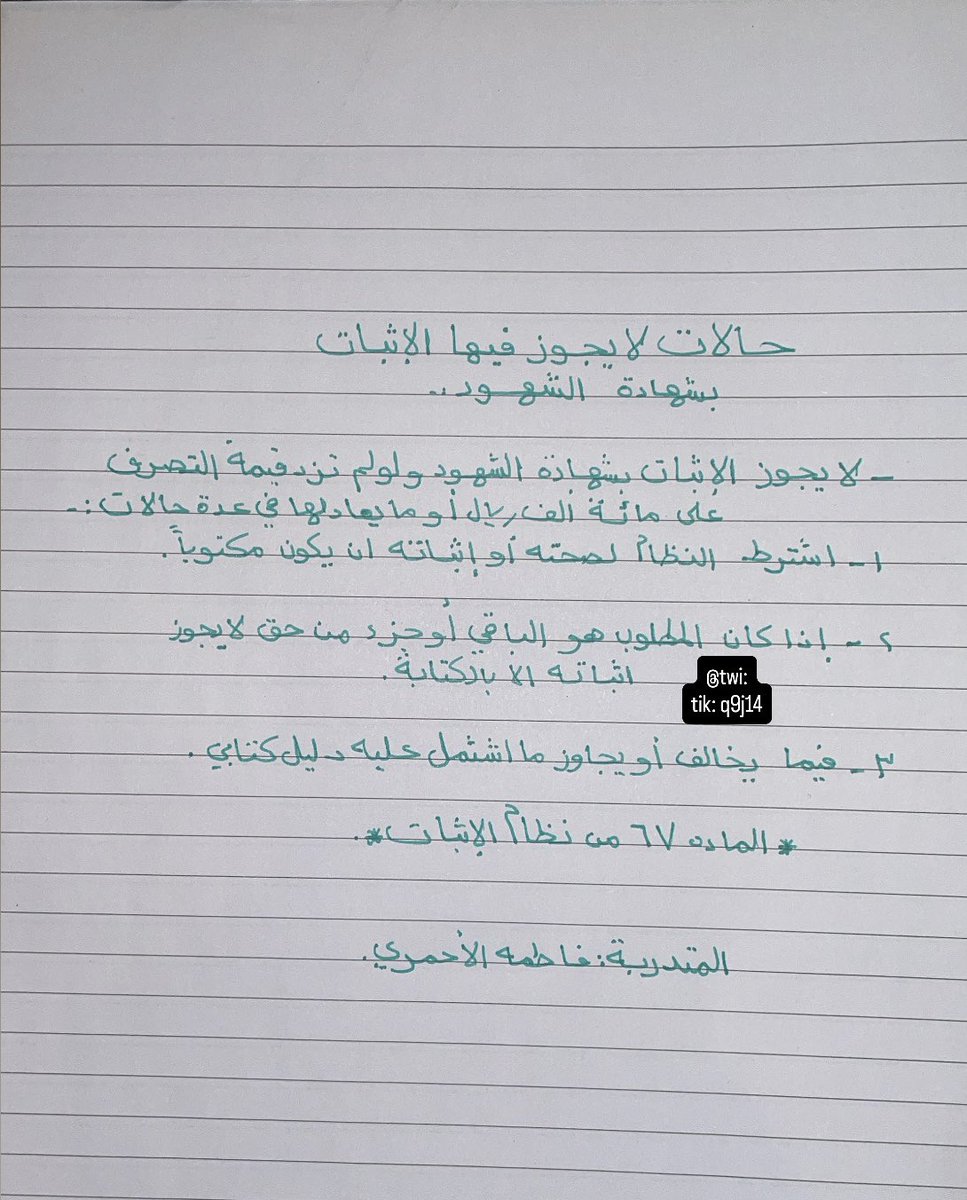 حالات لا يجوز فيها الإثبات
بشهادة الشهود..
- لا يجوز الإثبات بشهادة الشهود ولو لم تزد قيمة التصرف
على مائة ألف ريال أو ما يعادلها في عدة حالات :-
١- اشترط النظام لصحته أو إثباته ان يكون مكتوباً.
٢- إذا كان المطلوب هو الباقي أو جزء من حق لا يجوز
اثباته الا بالكتابة.
@twi:
tik: q9j14
٣- فيما يخالف أو يجاوز ما اشتمل عليه دليل كتابي.
* الماده ٦٧ من نظام الإثبات *.
المتدربة: فاطمه الأحمري.